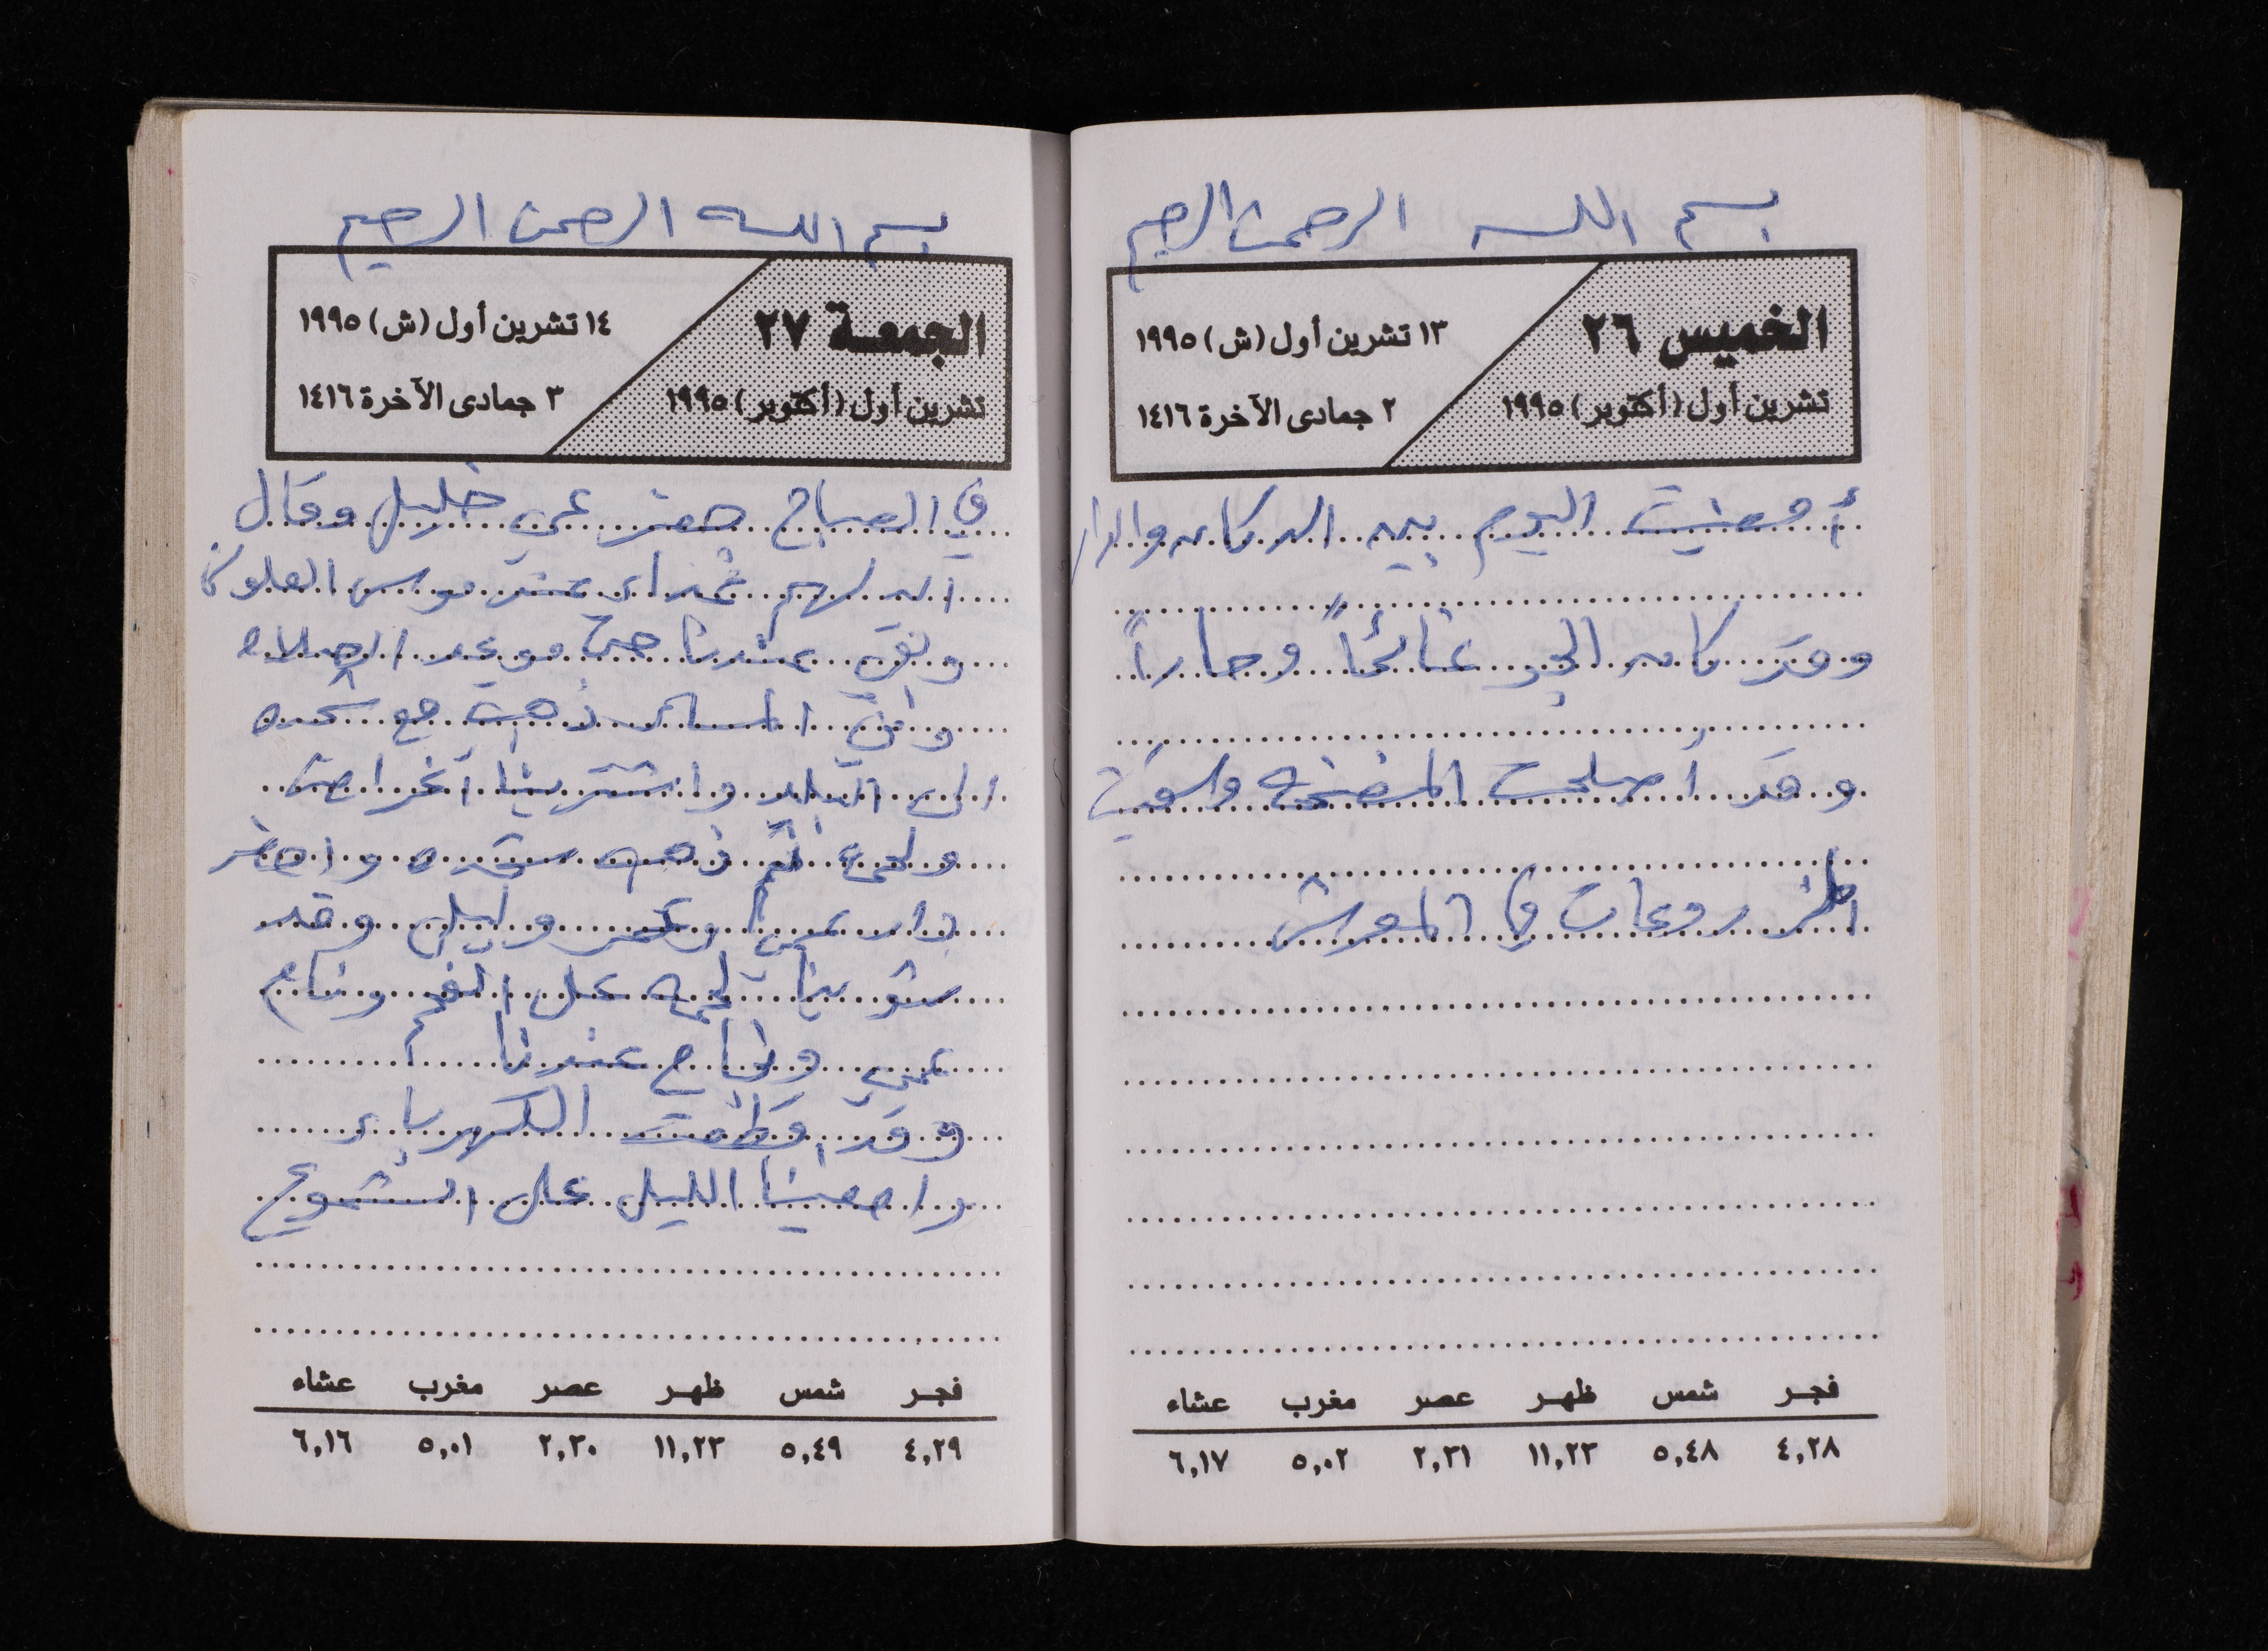 بسم الله الرحمن الرحيم
الخميس ٢٦
تشرين أول (أكتوبر) ١٩٩٥
١٣ تشرين أول (ش) ١٩٩٥
٢ جمادى الآخرة ١٤١٦
أمضيت اليوم بين الدكان والدار
وقد كان الجو غائماً وحاراً
وقد أصلحت المضخة وسقيت
المزروعات في المعرش
فجر شمس ظهر عصر مغرب عشاء
٤,٢٨ ٥,٤٨ ١١,٢٣ ٢,٣١ ٥,٠٢ ٦,١٧
بسم الله الرحمن الرحيم
الجمعة ٢٧
تشرين أول (أكتوبر) ١٩٩٥
١٤ تشرين أول (ش) ١٩٩٥
٣ جمادى الآخرة ١٤١٦
في الصباح حضر عمي خليل وقال
ان لهم غداء عند موسى
وبقي عندنا حتى موعد الصلاة
وفي المساء ذهبت مع
الى البلد واشترينا أغراض
ولحمة ثم ذهب واحضر
دار عمي وليلى وقد
شوينا لحمه على الفحم ونام
عمي عندنا
وقد قطعت الكهرباء
وامضينا الليل على الشموع
فجر شمس ظهر عصر مغرب عشاء
٤,٢٩ ٥,٤٩ ١١,٢٣ ٢,٣٠ ٥,٠١ ٦,١٦